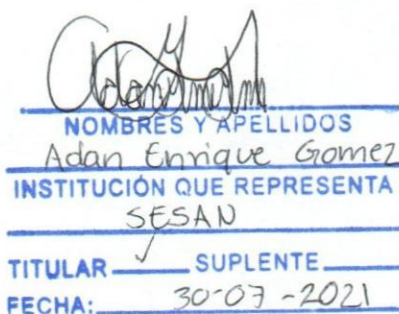 NOMBRES Y APELLIDOS
Adan Enrique Gomez
INSTITUCIÓN QUE REPRESENTA
SESAN
TITULAR ✓ SUPLENTE
FECHA: 30-07-2021